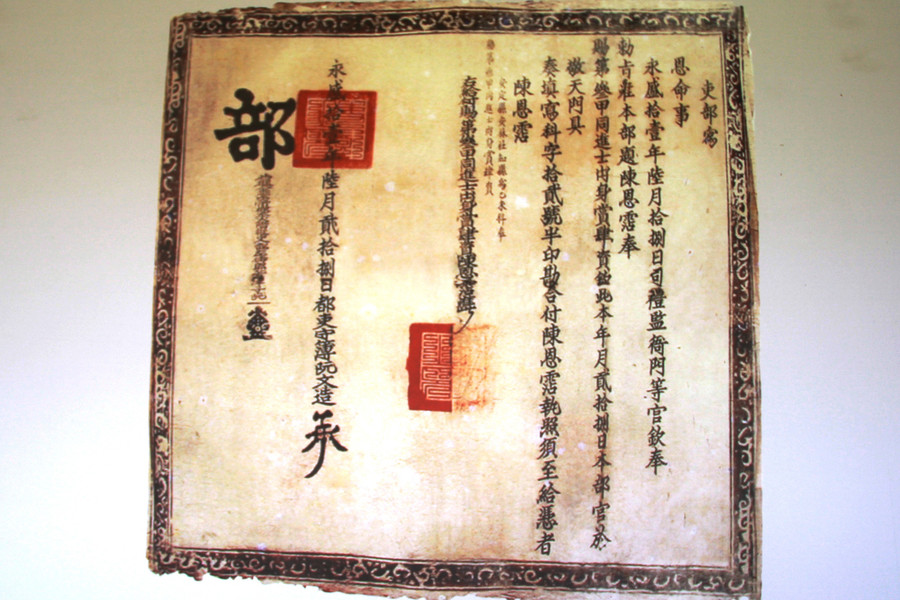 吏部為
恩命事
永盛拾壹年陸月拾捌日司禮監衙門等官欽奉
勅旨准本部題陳恩霑奉
賜第叄甲同進士出身賞肆資敬此本年月貳拾捌日本部官於
敬天門具
奏填寫科字拾貳號半印勘合付陳恩霑執照須至給憑者
陳恩霑
右給付賜第叄甲同進士出身賞肆資陳恩霑
永盛拾壹年陸月貳拾捌日都吏守簿阮文造 承
部